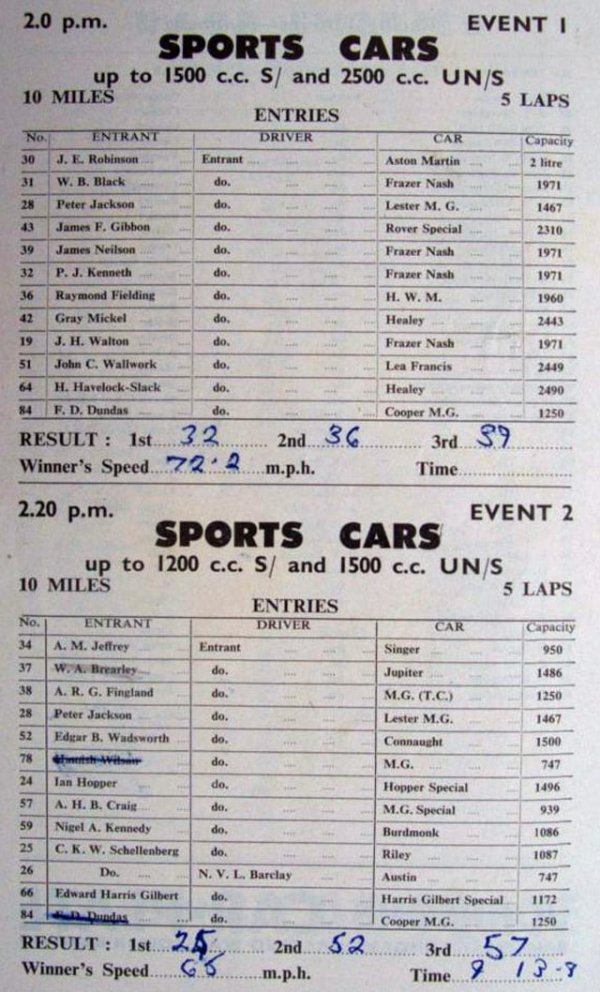 2.0 p.m. EVENT 1
SPORTS CARS
up to 1500 c.c. S/ and 2500 c.c. UN/S
10 MILES 5 LAPS
ENTRIES
No. ENTRANT DRIVER CAR Capacity
30 J. E. Robinson Entrant Aston Martin 2 litre
31 W. B. Black do. Frazer Nash 1971
28 Peter Jackson do. Lester M. G. 1467
43 James F. Gibbon do. Rover Special 2310
39 James Neilson do. Frazer Nash 1971
32 P. J. Kenneth do. Frazer Nash 1971
36 Raymond Fielding do. H. W. M. 1960
42 Gray Mickel do. Healey 2443
19 J. H. Walton do. Frazer Nash 1971
51 John C. Wallwork do. Lea Francis 2449
64 H. Havelock-Slack do. Healey 2490
84 F. D. Dundas do. Cooper M.G. 1250
RESULT : 1st 32 2nd 36 3rd 39
Winner's Speed 72.2 m.p.h. Time
2.20 p.m. EVENT 2
SPORTS CARS
up to 1200 c.c. S/ and 1500 c.c. UN/S
10 MILES 5 LAPS
ENTRIES
No. ENTRANT DRIVER CAR Capacity
34 A. M. Jeffrey Entrant Singer 950
37 W. A. Brearley do. Jupiter 1486
38 A. R. G. Fingland do. M.G. (T.C.) 1250
28 Peter Jackson do. Lester M.G. 1467
52 Edgar B. Wadsworth do. Connaught 1500
78 Wilson do. M.G. 747
24 Ian Hopper do. Hopper Special 1496
57 A. H. B. Craig do. M.G. Special 939
59 Nigel A. Kennedy do. Burdmonk 1086
25 C. K. W. Schellenberg do. Riley 1087
26 Do. N. V. L. Barclay Austin 747
66 Edward Harris Gilbert do. Harris Gilbert Special 1172
84 F. D. Dundas do. Cooper M.G. 1250
RESULT : 1st 25 2nd 52 3rd 57
Winner's Speed 65 m.p.h. Time 9 13.8